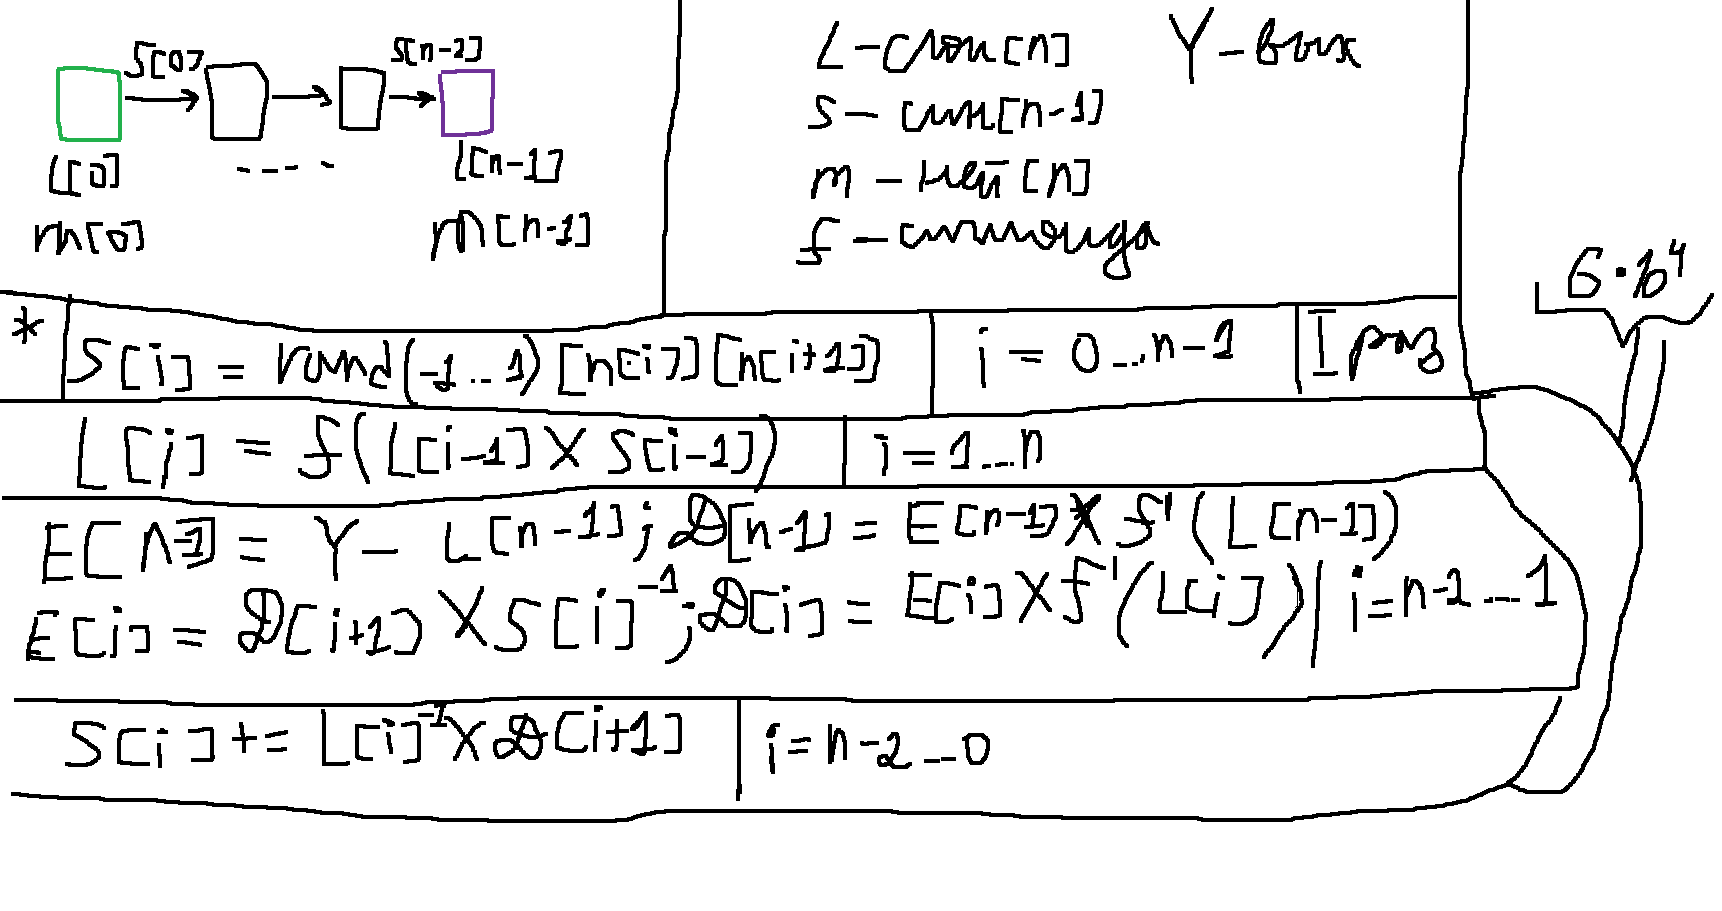 S[0] S[n-2]
L[0] - - - - L[n-1]
m[0] m[n-1]
L - слои[n] Y - вых
S - син[n-1]
m - ней[n]
f - сигмоида
6·10⁴
* S[i] = rand(-1..1)[n[i]][n[i+1]] i = 0...n-1 1 раз
L[i] = f(L[i-1] X S[i-1]) i=1...n
E[n-1] = Y - L[n-1]; D[n-1] = E[n-1] X f'(L[n-1])
E[i] = D[i+1] X S[i]⁻¹; D[i] = E[i] X f'(L[i]) | i=n-2...1
S[i] += L[i]⁻¹ X D[i+1] i=n-2...0